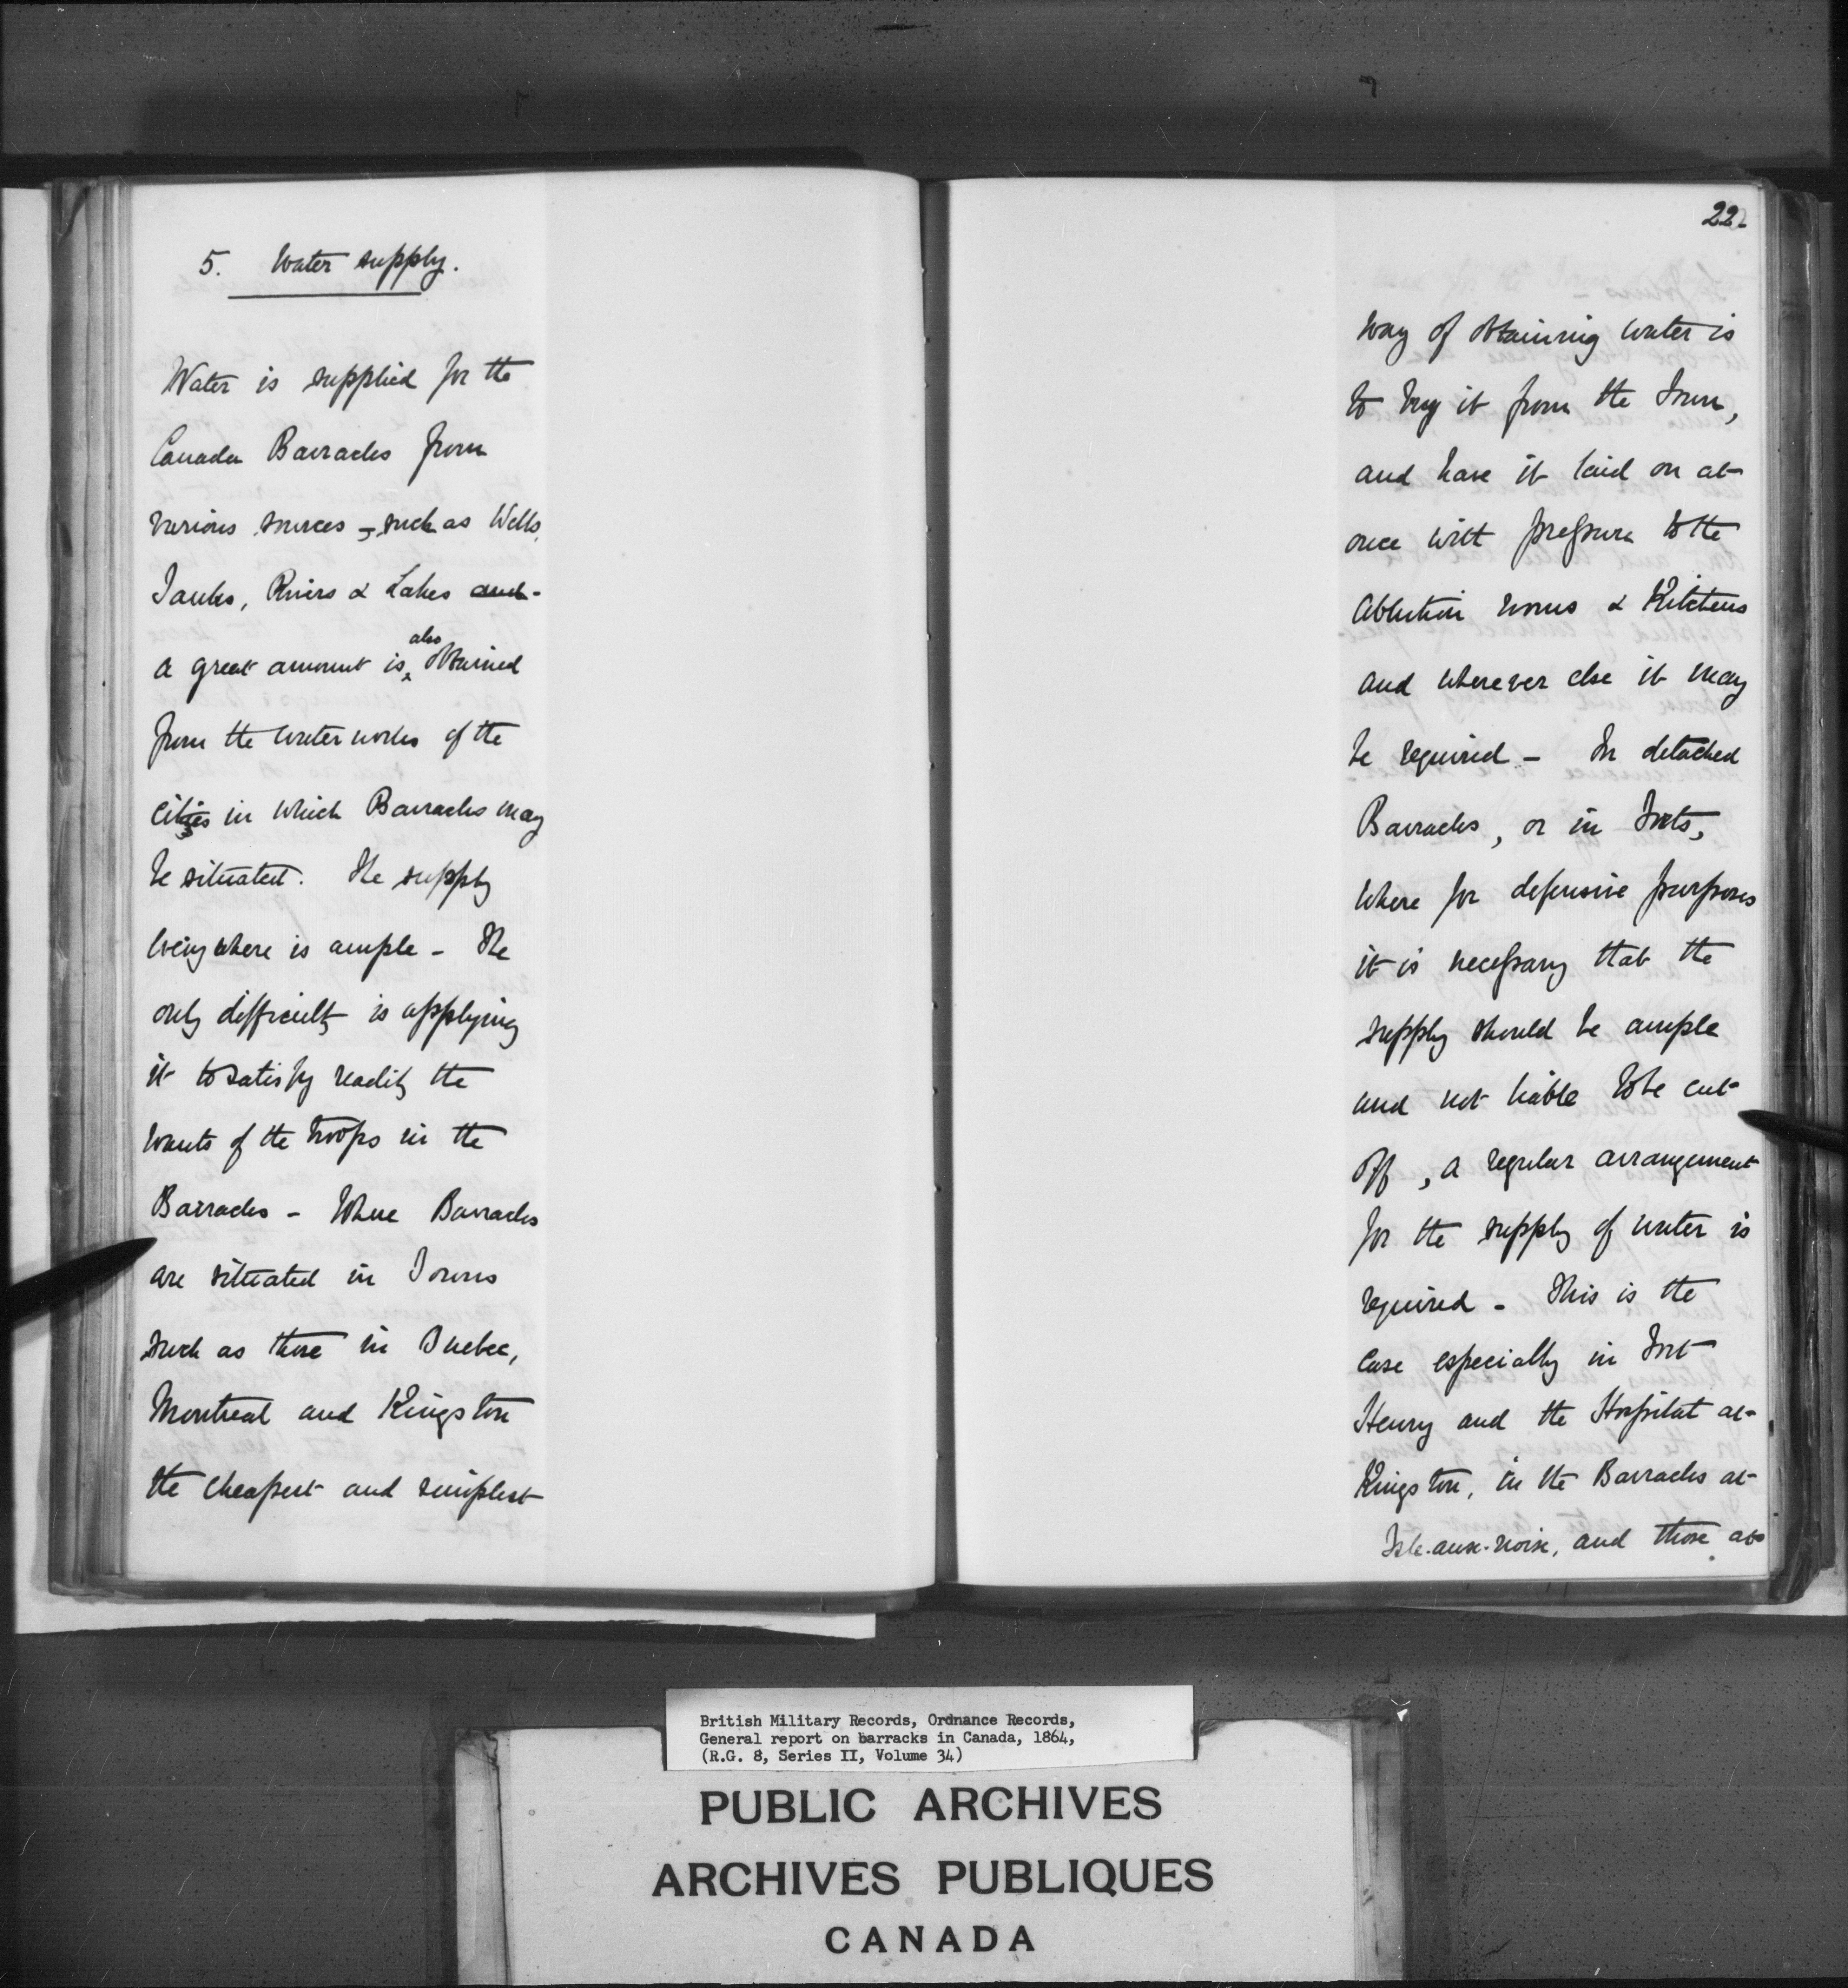 5. Water supply.
Water is supplied for the
Canada Barracks from
various sources – such as Wells,
Tanks, Rivers & Lakes and
a great amount is also obtained
from the water works of the
cities in which Barracks may
be situated. The supply
everywhere is ample – The
only difficulty is applying
it to satisfy readily the
wants of the troops in the
Barracks – Where Barracks
are situated in Towns
such as those in Quebec,
Montreal and Kingston
the cheapest and simplest
22
way of obtaining water is
to buy it from the Town,
and have it laid on at
once with pressure to the
Ablution rooms & Kitchens
and wherever else it may
be required – In detached
Barracks, or in Forts,
where for defensive purposes
it is necessary that the
supply should be ample
and not liable to be cut
off, a regular arrangement
for the supply of water is
required – This is the
case especially in Fort
Henry and the Hospital at
Kingston, in the Barracks at
Isle-aux-noix, and those at
British Military Records, Ordnance Records,
General report on barracks in Canada, 1864,
(R.G. 8, Series II, Volume 34)
PUBLIC ARCHIVES
ARCHIVES PUBLIQUES
CANADA